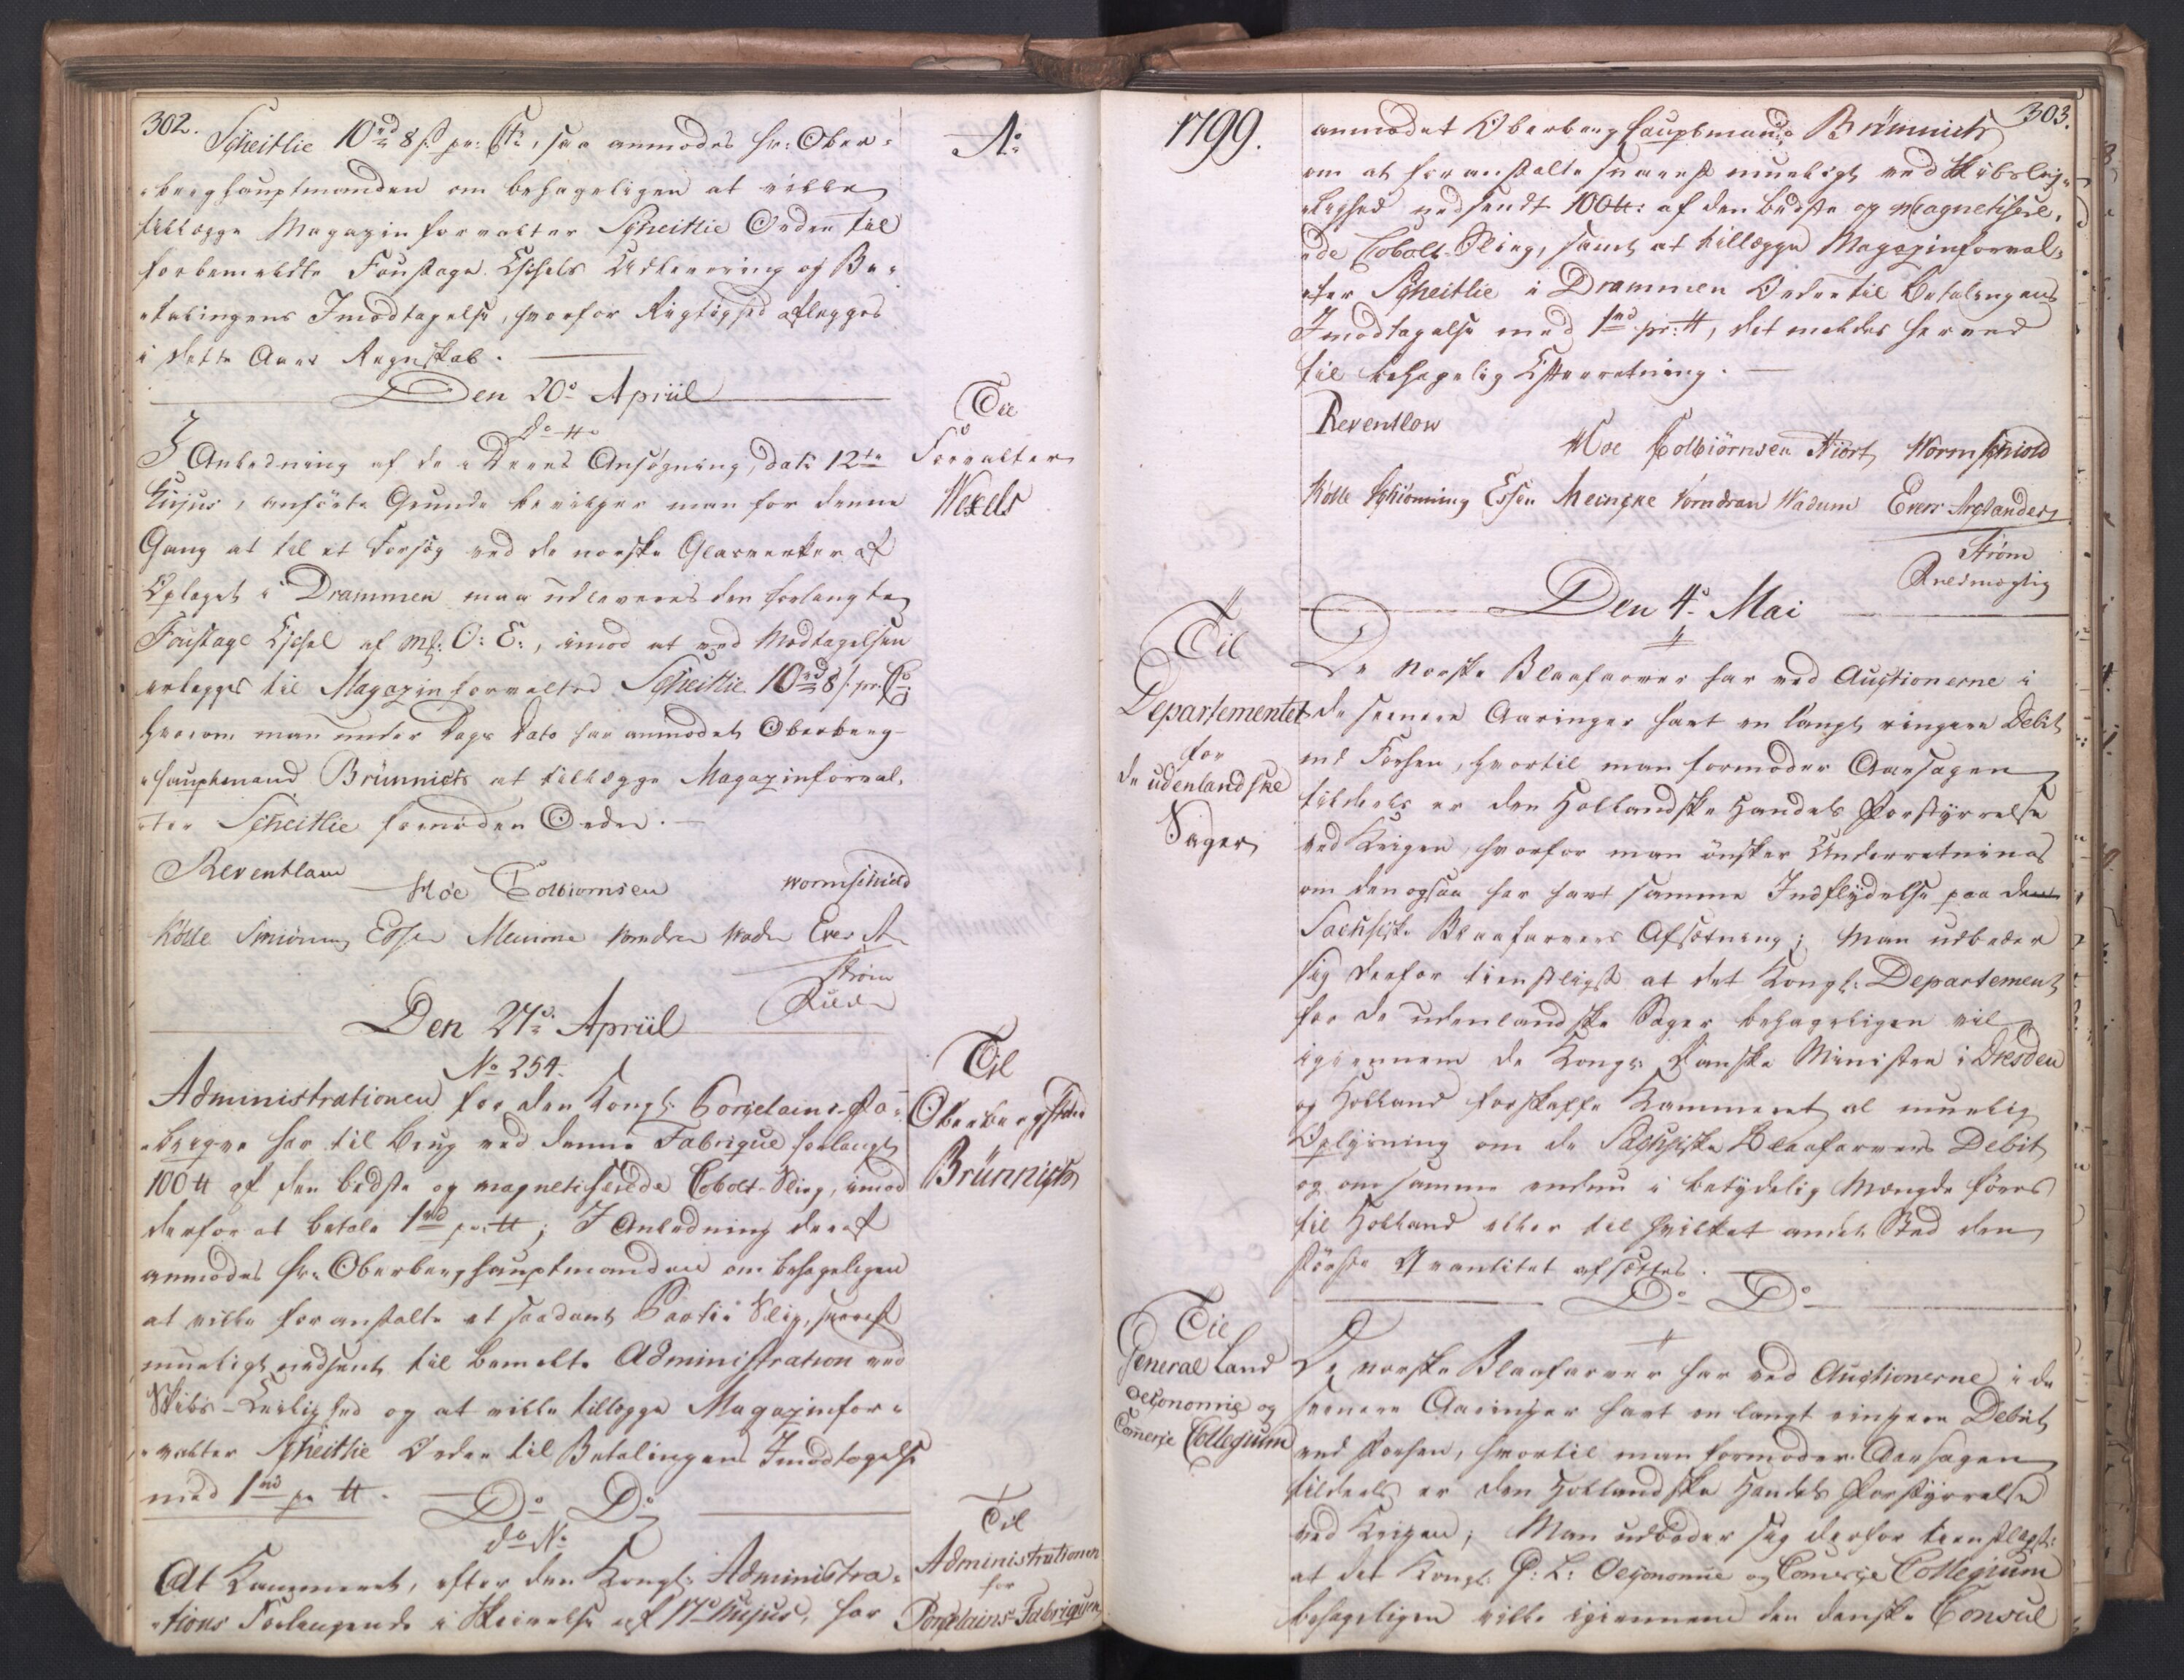 302.
Scheitlie 10rd 8ß pr: Ct:, saa anmodes Hr: Ober-
berghauptmanden om behageligen at ville
tillægge Magazinforvalter Scheitlie Ordre til
forbemeldte Foustage Eschels Udlevering og Be-
talingens Imodtagelse, hvorfor Rigtighed aflægges
i dette Aars Regnskab.
Ao
Den 20de Apriil
do №
Til
Forvalter
Wexels
I Anledning af de i Deres Ansøgning, dat: 12te
hujus, anførte Grunde bevilger man for denne
Gang at til et Forsøg ved de norske Glasværker af
Oplaget i Drammen maa udleveres den forlangte
Foustage Eschel af Mk: O: E:, imod at ved Modtagelsen
erlægges til Magazinforvalter Scheitlie 10rd 8ß pr: Ct:
hvorom man under Dags Dato har anmodet Oberberg-
hauptmand Brünnich at tillægge Magazinforval-
ter Scheitlie fornøden Ordre.
Reventlau
Moe Colbiornsen Wormschiold
Kölle Essen Meincke Wadum
Strøm
Den 27de Apriil
№ 254.
Til
Oberbergh
Brünnich
Administrationen for den Kongl: Porcelains-Fa-
brique har til Brug ved denne Fabrique forlangt
100 ℔ af den bedste og magnetiserede Cobolt-Slieg, imod
derfor at betale 1rd pr: ℔; I Anledning deraf
anmodes Hr: Oberberghauptmanden om behageligen
at ville foranstalte et saadant Partie Slieg, snarest
mueligt nedsendt til bemelte Administration ved
Skibs-Leilighed og at ville tillægge Magazinfor-
valter Scheitlie Ordre til Betalingens Imodtagelse
med 1rd pr ℔.
Do Do
do №
Til
Administrationen
for
Porcelains-Fabriquen
At Kammeret, efter den Kongl: Administra-
tions Forlangende i Skrivelse af 17de hujus, har
1799.
303.
anmodet Oberberghauptmand Brünnich
om at foranstalte snarest mueligt ved Skibslej-
lighed nedsendt 100 ℔: af den bedste og magnetisere-
de Cobolt-Slieg, samt at tillægge Magazinforval-
ter Scheitlie i Drammen Ordre til Betalingens
Imodtagelse med 1rd pr: ℔, det meldes herved
til behagelig Efterretning.
Reventlow
Moe Colbiørnsen Hiort Wormschiold
Kölle Schiønning Essen Meincke Vorndran Wadum Evers Arctander
Strøm
Knesmøglig
Den 4de Mai
Til
Departementet
for
de udenlandske
Sager
De norske Blaafarver har ved Auctionerne i
de senere Aaringer havt en langt ringere Debit
end Forhen, hvortil man formoder Aarsagen
tildeels er den Hollandske Handels Forstyrrelse
ved Krigen, hvorfor man ønsker Underretning
om den ogsaa har havt samme Indflydelse paa de
Sachsiske Blaafarvers Afsætning; Man udbeder
sig derfor tienstligst at det Kongl: Departement
for de udenlandske Sager behageligen vil
igiennem de Kongl: Danske Ministre i Dresden
og Holland forskaffe Kammeret al muelig
Oplysning om de Sachsiske Blaafarvers Debit
og om samme endnu i betydelig Mængde føres
til Holland eller til hvilket andet Sted den
største Qvantitet afsættes.
Do Do
Til
General Land
Oeconomie og
Commerce Collegium
De norske Blaafarver har ved Auctionerne i de
senere Aaringer havt en langt ringere Debit
end Forhen, hvortil man formoder Aarsagen
tildeels er den Hollandske Handels Forstyrrelse
ved Krigen; Man udbeder sig derfor tienstligst:
at det Kongl: G: L: Oeconomie og Commerce Collegium
behageligen ville igiennem den danske Consul